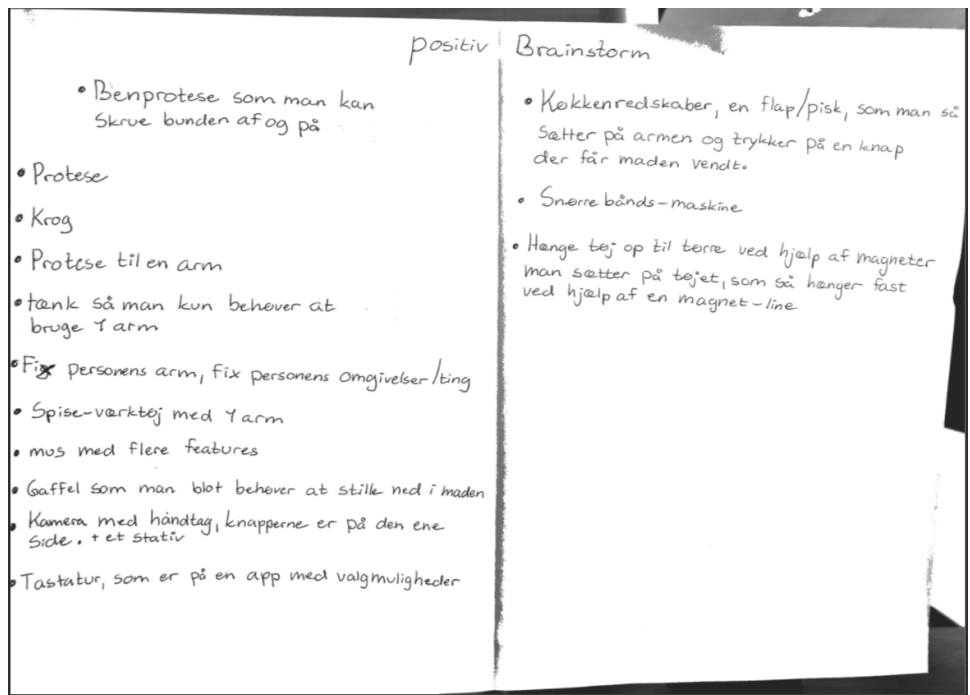 positiv Brainstorm
• Benprotese som man kan
skrue bunden af og på
• Protese
• Krog
• Protese til en arm
• tænk så man kun behøver at
bruge 1 arm
• Fix personens arm, fix personens omgivelser/ting
• Spise-værktøj med 1 arm
• mus med flere features
• Gaffel som man blot behøver at stille ned i maden
• Kamera med håndtag, knapperne er på den ene
side. + et stativ
• Tastatur, som er på en app med valgmuligheder
• Køkkenredskaber, en flap/pisk, som man så
sætter på armen og trykker på en knap
der får maden vendt.
• Snørre bånds-maskine
• Hænge tøj op til tørre ved hjælp af magneter
man sætter på tøjet, som så hænger fast
ved hjælp af en magnet-line